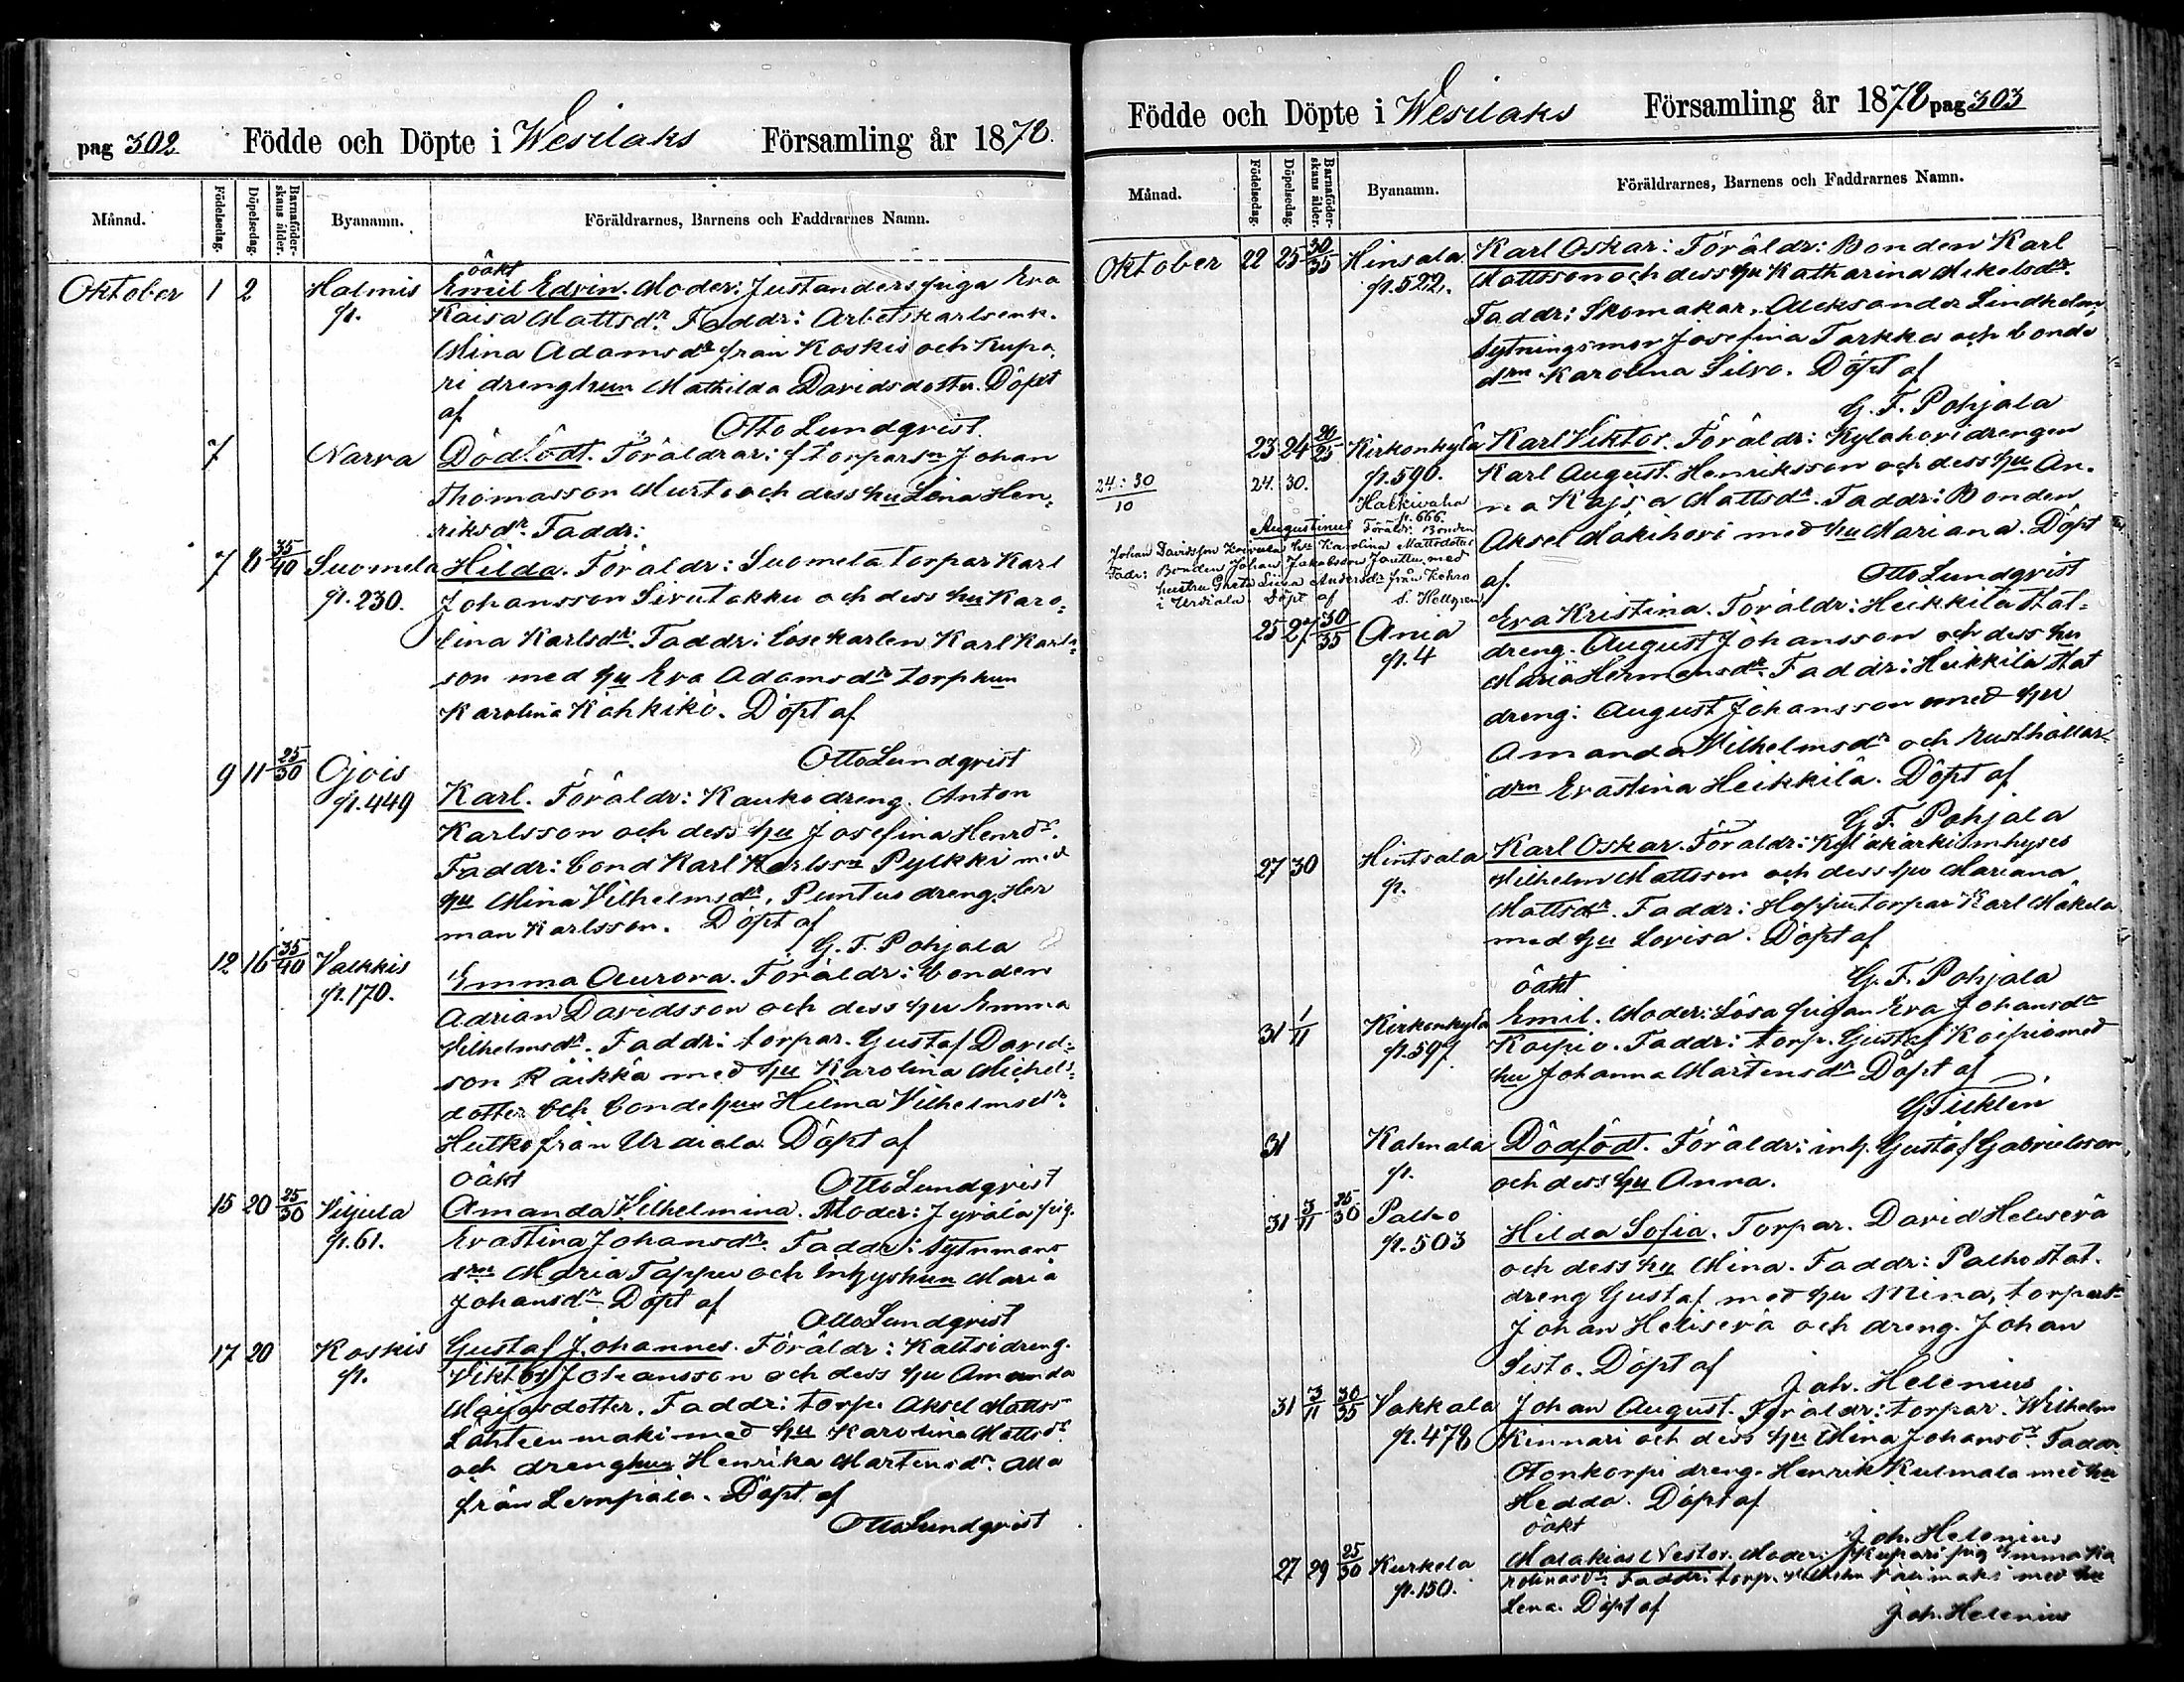 pag 302 Födde och Döpte i Wesilaks Församling år 1878.
Månad. Födelsedag. Döpelsedag. Barnaföderskans ålder. Byanamn. Föräldrarnes, Barnens och Faddrarnes Namn.
oäkt
Oktober 1 2 Halmis Emil Edvin. Moder: Justanders piga Eva
p. Kaisa Mattsdr. Faddr: Arbetskarlsenk.
Mina Adamsdr från Koskis och Kupa,
ri drenghun Mathilda Davidsdotter. Döpt
af
Otto Lundqvist.
7 Narva Dödfödt. Föräldrar: ftorparsn Johan
Thomasson Murto och dess hu Lena Hen,
riksdr. Faddr:
7 8 35/40 Suomela Hilda. Föräldr: Suomela torpar Karl
p. 230. Johansson Sirutakku och dess hu Karo,
lina Karlsdr. Faddr: Lösekarlen Karl Karls,
son med hu Eva Adamsdr torphun
Karolina Kähkikö. Döpt af
Otto Lundqvist
9 11 25/30 Ojois
p. 449 Karl. Föräldr: Kauko dreng. Anton
Karlsson och dess hu Josefina Henrdr.
Faddr: bond Karl Karlssn Pylkki med
hu Mina Vilhelmsdr, Puntus dreng. Her
man Karlsson. Döpt af
G. F. Pohjala
12 16 35/40 Valkkis
p. 170. Emma Aurora. Föräldr: bonden
Adrian Davidsson och dess hu Emma
Vilhelmsdr. Faddr: torpar. Gustaf David=
son Räikkä med hu Karolina Michels=
dotter och bondehun Hilma Vilhelmsdr.
Hutko från Urdiala. Döpt af
oäkt Otto Lundqvist
15 20 25/30 Viijula Amanda Vilhelmina. Moder: Jyrälä pig.
p. 61. Evastina Johansdr. Faddr: Sytnmans
drn Maria Tappu och Inhyshun Maria
Johansdr. Döpt af
Otto Lundqvist
17 20 Koskis Gustaf Johannes. Föräldr: Kaltsi dreng.
p. Viktor Johansson och dess hu Amanda
Maijasdotter. Faddr: torp. Aksel Mattss
Lähteenmäki med hu Karolina Mattsdr.
och drenghun Henrika Mårtensdr. Alla
från Lempäälä. Döpt af
Otto Lundqvist
Födde och Döpte i Wesilaks Församling år 1878 pag 303
Månad. Födelsedag. Döpelsedag. Barnaföderskans ålder. Byanamn. Föräldrarnes, Barnens och Faddrarnes Namn.
Oktober 22 25 30/35 Hinsala Karl Oskar: Föräldr: Bonden Karl
p. 522. Mattsson och dess hu Katharina Mikelsdr.
Faddr: Skomakar. Aleksander Lindholm,
Sytningsmor Josefina Tarkka och bonde
drn Karolina Silvo. Döpt af
G. F. Pohjala
23 24 20/25 Kirkonkylä Karl Viktor. Föräldr: Kylähovi drengen
p. 590. Karl August Henriksson och dess hu An=
na Kajsa Mattsdr. Faddr: Bonden
Aksel Mäkihovi med hu Mariana. Döpt
af. Otto Lundqvist
24: 30/10 24. 30. Halkivaha
p. 666.
Augustinus Föräldr: Bonden
Johan Davidsson Koivula hn Karolina Mattsdotter
Fadr: Bonden Johan Jakobsson Janttu med
hustru Greta Liisa Andersdr från Kehro
i Urdiala Döpt af S. Hellgren
25 27 30/35 Ania Eva Kristina. Föräldr: Heikkilä stat=
p. 4 dreng. August Johansson och dess hu
Maria Hermansdr. Faddr: Heikkilä stat
dreng: August Johansson med hu
Amanda Vilhelmsdr och Rusthållar=
drn Evastina Heikkilä. Döpt af
G. F. Pohjala
27 30 Hintsala Karl Oskar. Föräldr: Kyläkärki inhyses
p. Vilhelm Mattsson och dess hu Mariana
Mattsdr. Faddr: Hoppu torpar Karl Mäkelä
med hu Lovisa. Döpt af
G. F. Pohjala
oäkt
31 1/11 Kirkonkylä Emil. Moder: Lösa pigan Eva Johansdr
p. 597. Koipio. Faddr: torp. Gustaf Koipio med
hu Johanna Mårtensdr. Döpt af
31 Kalmala Dödfödt. Föräldr: inh. Gustaf Gabrielsson
p. och dess hu Anna.
31 3/11 25/30 Palho
p. 503 Hilda Sofia. Torpar. David Heliserä
och dess hu Mina. Faddr: Palho stat.
dreng Gustaf med hu Mina, torpars
Johan Heliserä och dreng. Johan
Sisto. Döpt af
Joh. Helenius
31 3/11 30/35 Vakkala Johan August. Föräldr: torpar. Wilhelm
p. 478 Kinnari och dess hu Mina Johansdr. Faddr.
Otonkorpi dreng. Henrik Kulmala med hu
Hedda. Döpt af
oäkt Joh. Helenius
27 29 25/30 Kurkela Malakias Nestor. Moder: Kupari pig Emma Ka
p. 150. rolinasdr. Faddr: torp. Wilhelm Palimäki med hu
Lena. Döpt af
Joh. Helenius